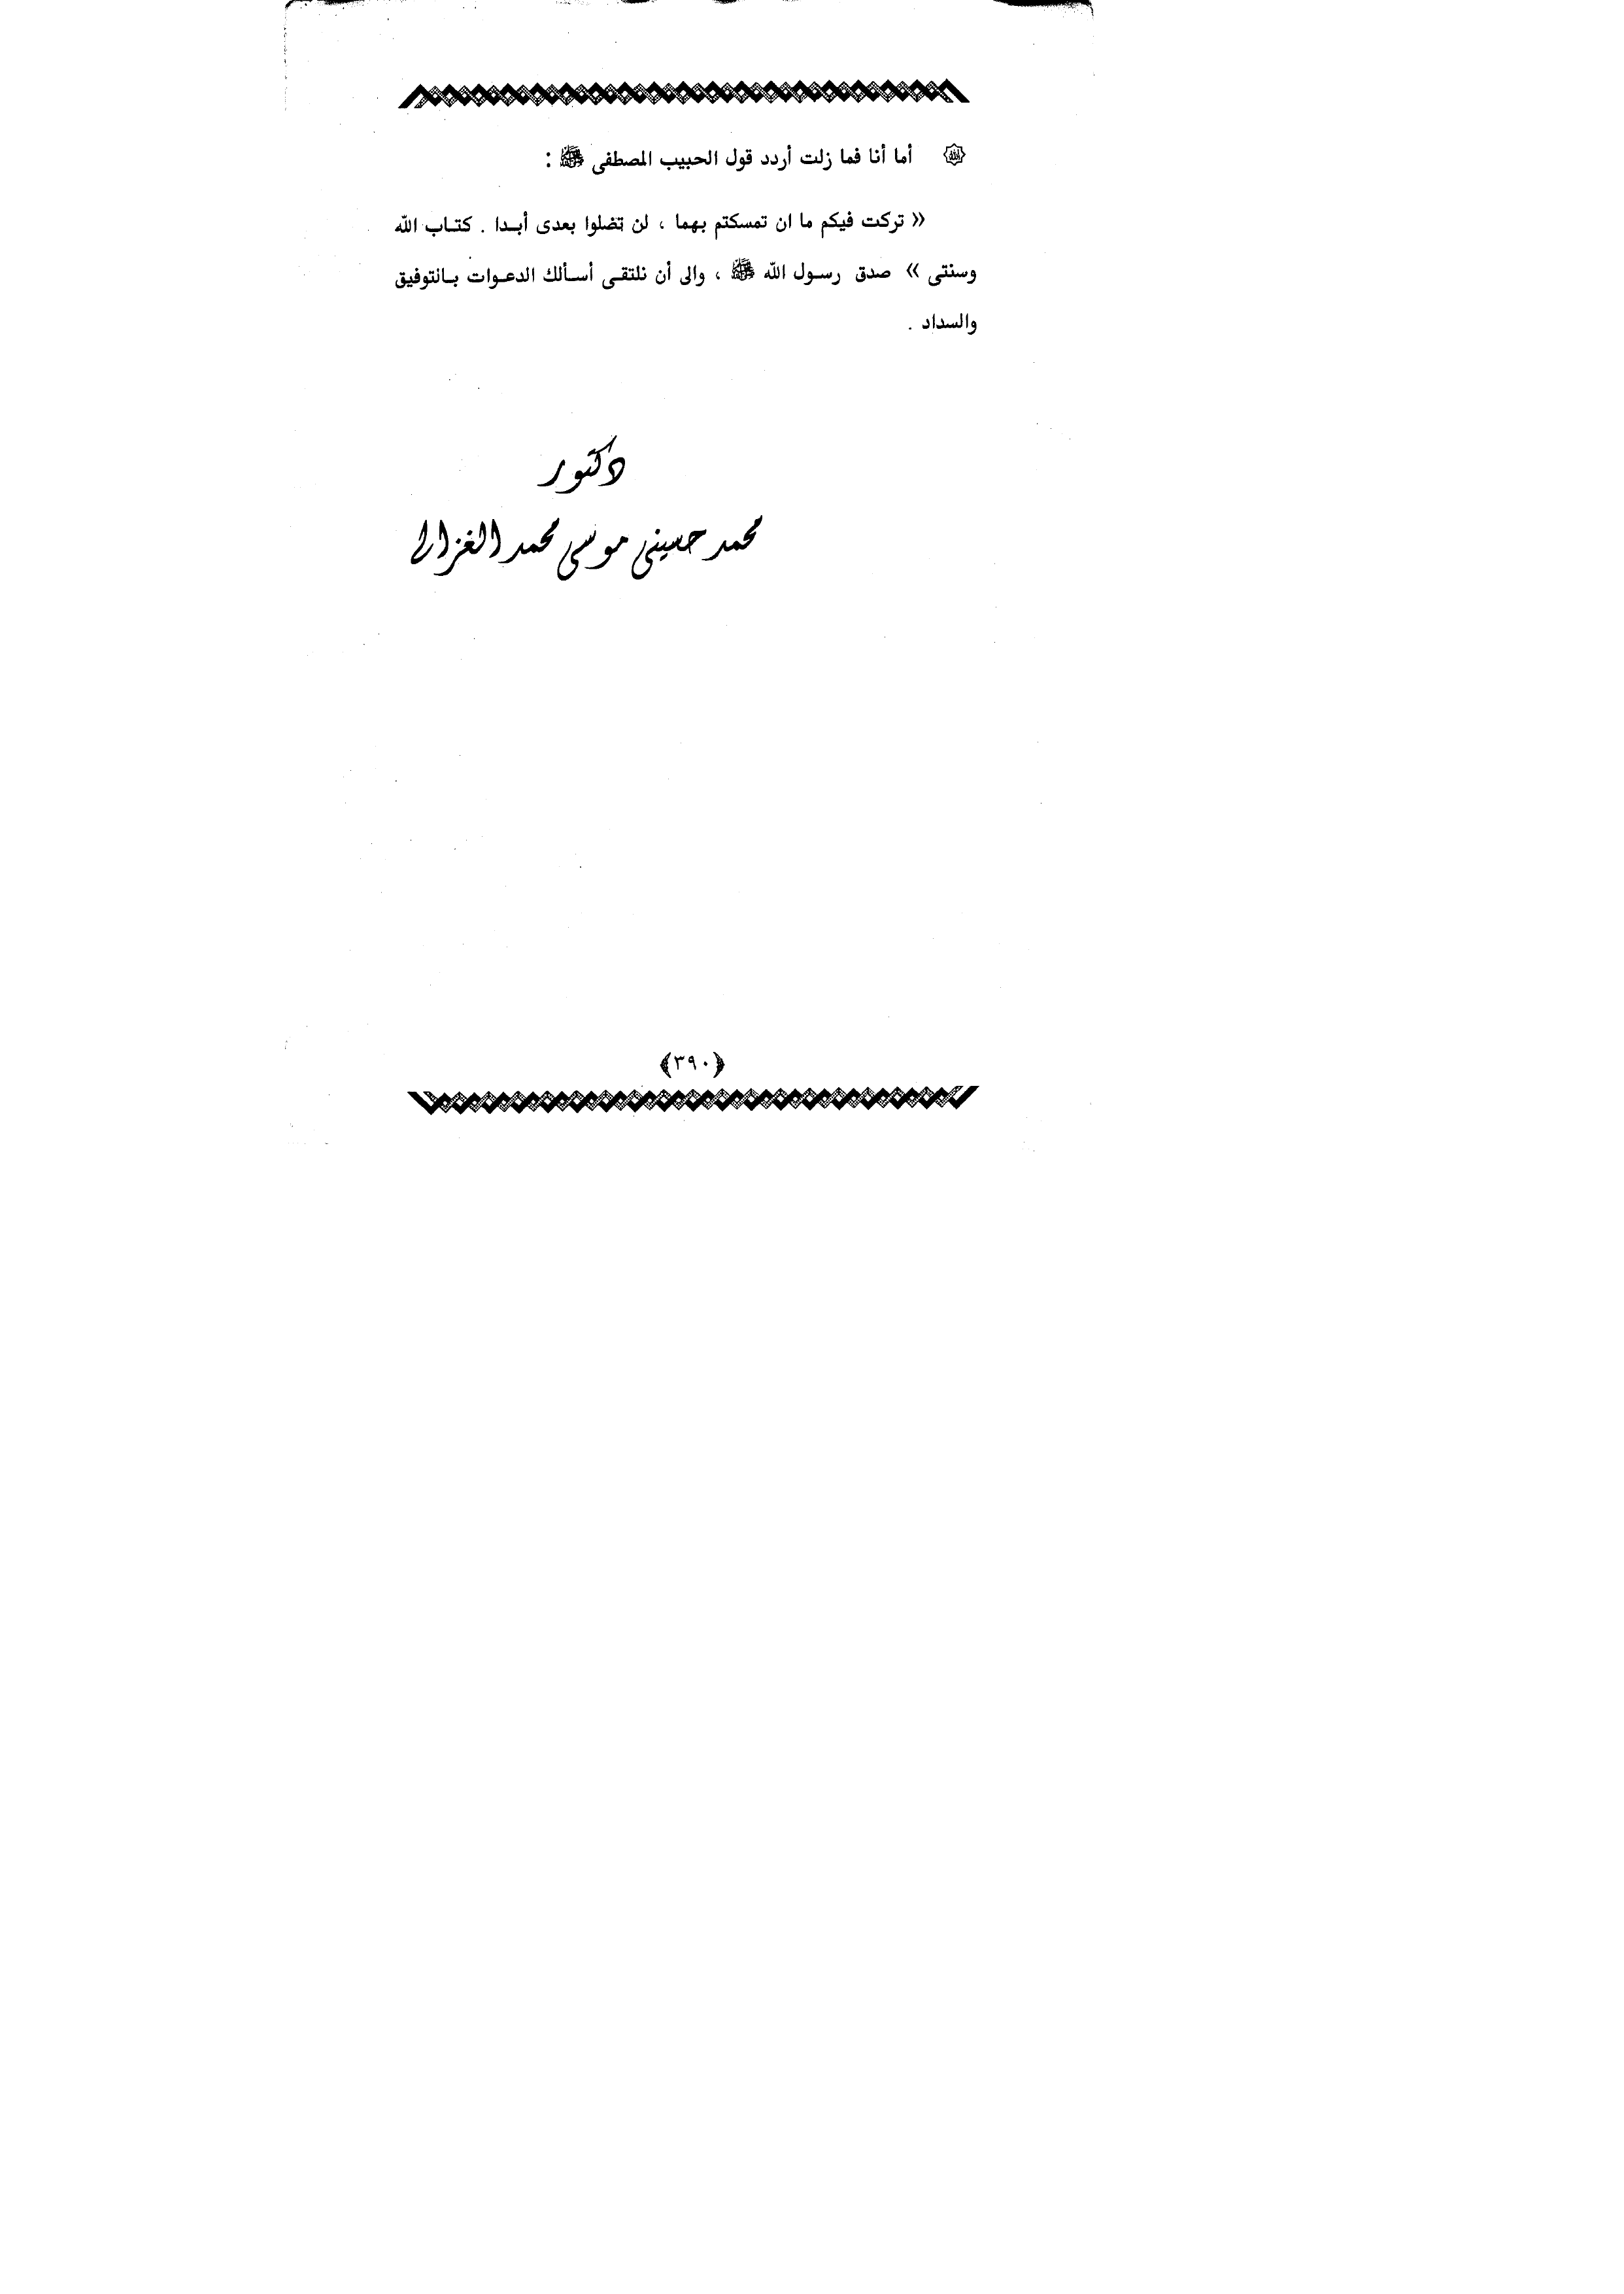 أما أنا فما زلت أردد قول الحبيب المصطفى ﷺ :
« تركت فيكم ما ان تمسكتم بهما ، لن تضلوا بعدى أبـدا . كتـاب الله
وسنتى » صدق رسـول الله ﷺ ، والى أن نلتقـى أسـألك الدعـوات بـالتوفيق
والسداد .
دكتور
محمد حسينى موسى محمد الغزالى
﴿٣٩٠﴾